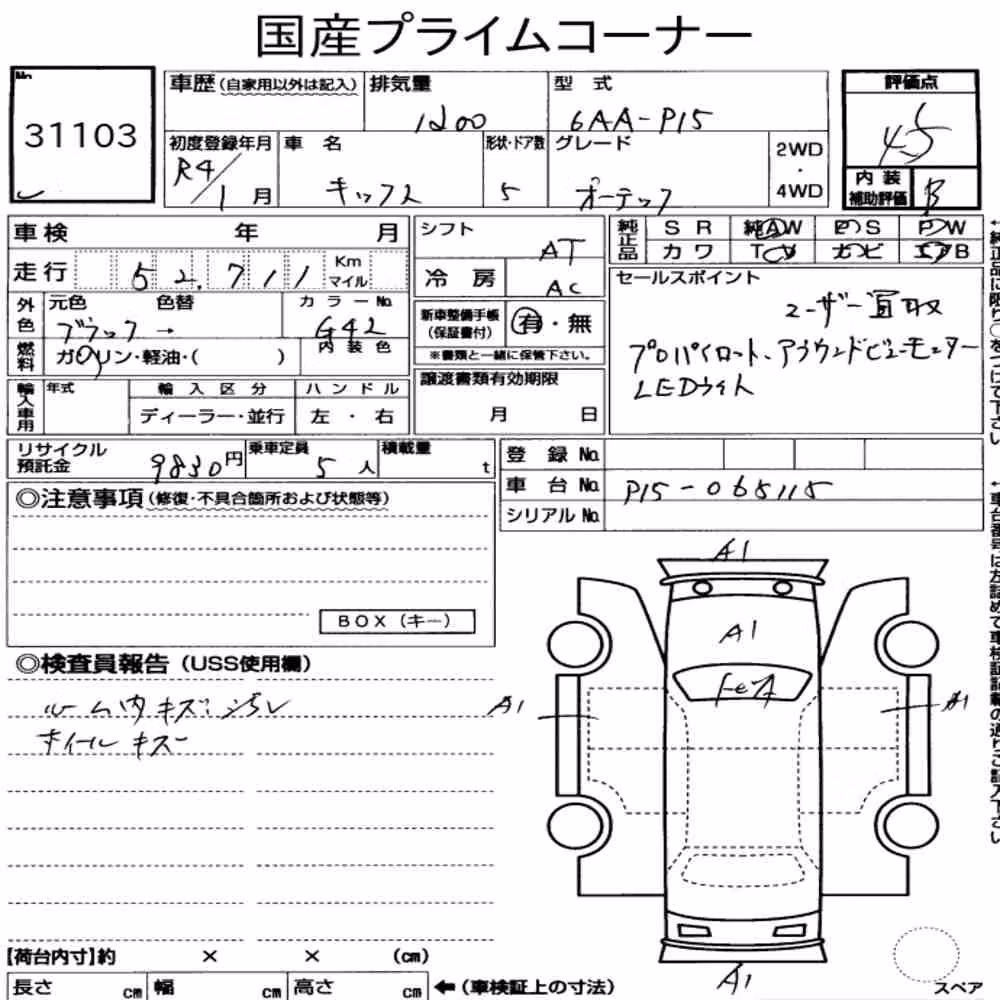 国産プライムコーナー
No.
31103
車歴 (自家用以外は記入)
排気量
1200
型 式
6AA-P15
評価点
4.5
初度登録年月
R4/1月
車 名
キックス
形状・ドア数
5
グレード
オーテック
2WD
・
4WD
内 装
補助評価
B
車検 年 月
走行 52,711 Km マイル
外色
元色 色替
ブラック →
カラーNo.
G42
燃料
ガソリン・軽油・( )
内 装 色
輸入車用
年式
輸 入 区 分
ディーラー・並行
ハ ン ド ル
左 ・ 右
シフト
AT
冷 房
AC
新車整備手帳
(保証書付)
有・無
※書類と一緒に保管下さい。
譲渡書類有効期限
月 日
純正品
S R 純AW P S P W
カ ワ T V ナ ビ エアB
セールスポイント
ユーザー買取
プロパイロット、アラウンドビューモニター
LEDライト
リサイクル
預託金
9830円
乗車定員
5人
積載量
t
登 録 No.
車 台 No.
P15-065115
シリアル No.
◎注意事項 (修復・不具合箇所および状態等)
BOX (キー)
◎検査員報告 (USS使用欄)
ルーム内キズ汚レ
ホイールキズ
A1
A1
A1
A1
A1
【荷台内寸】約 × × (cm)
長さ cm 幅 cm 高さ cm
(車検証上の寸法)
スペア
↑純正品に限り○をつけて下さい
↑車台番号は左詰めで車検証記載の通りご記入下さい